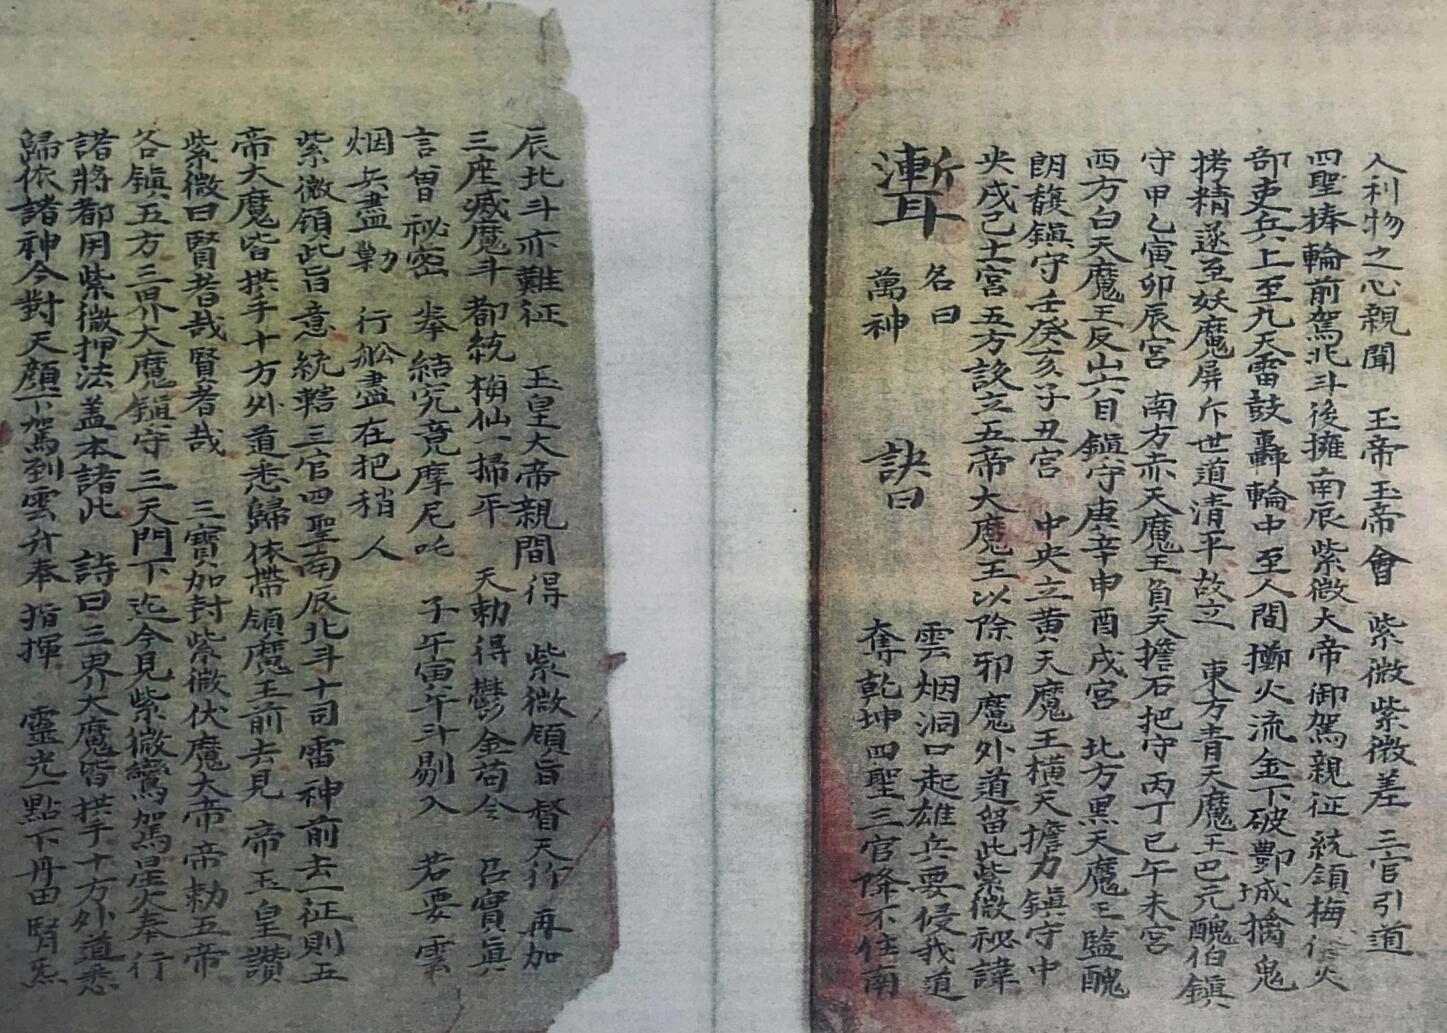 人利物之心親聞 玉帝玉帝會 紫微紫微差 三官引道
四聖捧輪前駕北斗後擁南辰紫微大帝御駕親征統領梅仙火
部吏兵上至九天雷鼓轟輪中至人間擲火流金下破酆城擒鬼
拷精遂至妖魔屏斥世道清平故立 東方青天魔王巴元醜伯鎮
守甲乙寅卯辰宮 南方赤天魔王負天擔石把守丙丁巳午未宮
西方白天魔王反山六目鎮守庚辛申酉戌宮 北方黑天魔王監醜
朗馥鎮守壬癸亥子丑宮 中央立黄天魔王橫天擔力鎮守中
央戌己土宮五方設立五帝大魔王以除邪魔外道留此紫微秘諱
名曰
萬神 訣曰
雲烟洞口起雄兵要侵我道
奪乾坤四聖三官降不住南
辰北斗亦難征 玉皇大帝親間得 紫微領旨督天行 再加
三座魔斗都統梅仙一掃平 天勅得鬱金苟令 吕實真
言曾秘密 拳結究竟摩尼吒 子午寅午斗剔入 若要雲
烟兵盡勦 行船盡在把稍人
紫微領此旨意統轄三官四聖南辰北斗十司雷神前去一征則五
帝大魔皆拱手十方外道悉歸依帶領魔王前去見 帝玉皇讚
紫微曰賢者哉賢者哉 三寶加封紫微伏魔大帝帝勅五帝
各鎮五方三界大魔鎮守三天門下迄今見紫微鸞駕星火奉行
諸將都用紫微押法盖本諸此 詩曰三界大魔皆拱手十方外道悉
歸依諸神今對天顏下駕到雲升奉指揮 靈光一點下丹田腎炁